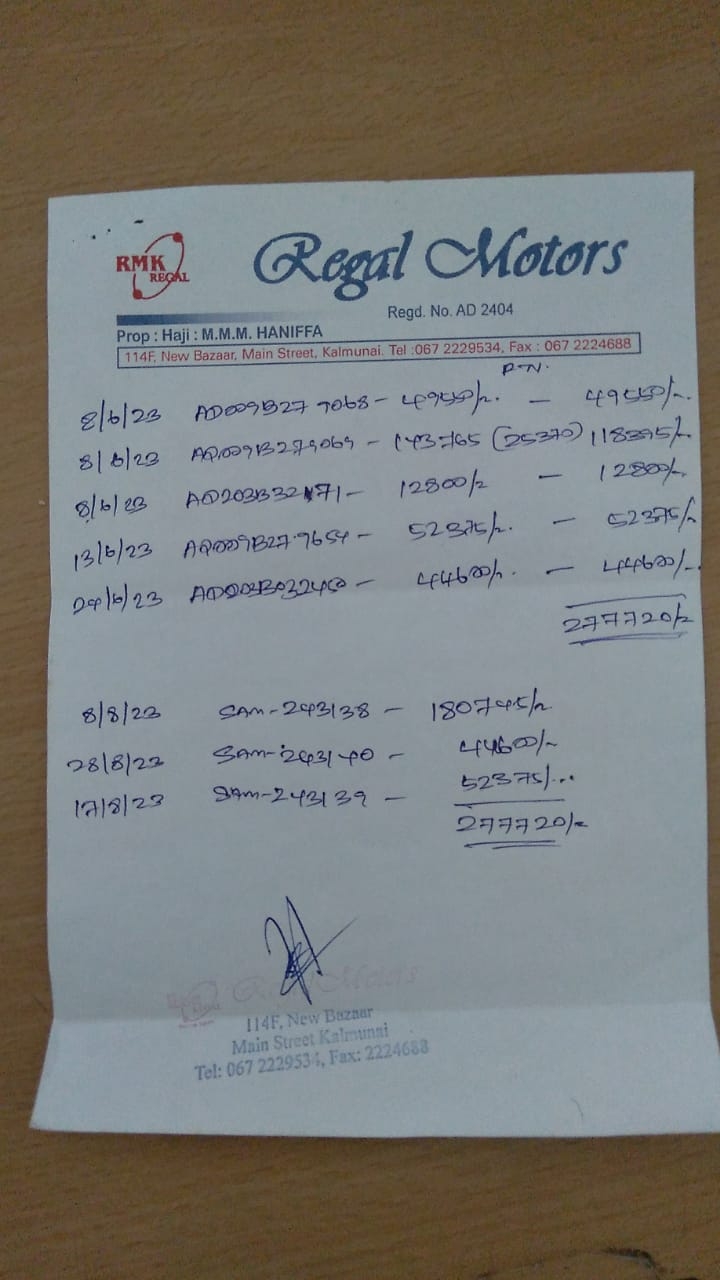 RMK
REGAL
Regal Motors
Regd. No. AD 2404
Prop : Haji : M.M.M. HANIFFA
114F, New Bazaar, Main Street, Kalmunai. Tel :067 2229534, Fax : 067 2224688
R.N.
8/6/23 AD009B277068 - 49550/-. - 49550/-.
8/6/23 AD009B279069 - 143765 (25370) 118395/-
8/6/23 AD203B32171 - 12800/- - 12800/-
13/6/23 AD009B279654 - 52375/-. - 52375/-
29/6/23 - 44600/-. - 44600/-.
277720/-
8/8/23 SAM-243138 - 180745/-
28/8/23 SAM-243140 - 44600/-
17/8/23 SAM-243139 - 52375/-..
277720/-
Regal Motors
114F, New Bazaar
Main Street Kalmunai
Tel: 067 2229534, Fax: 2224688